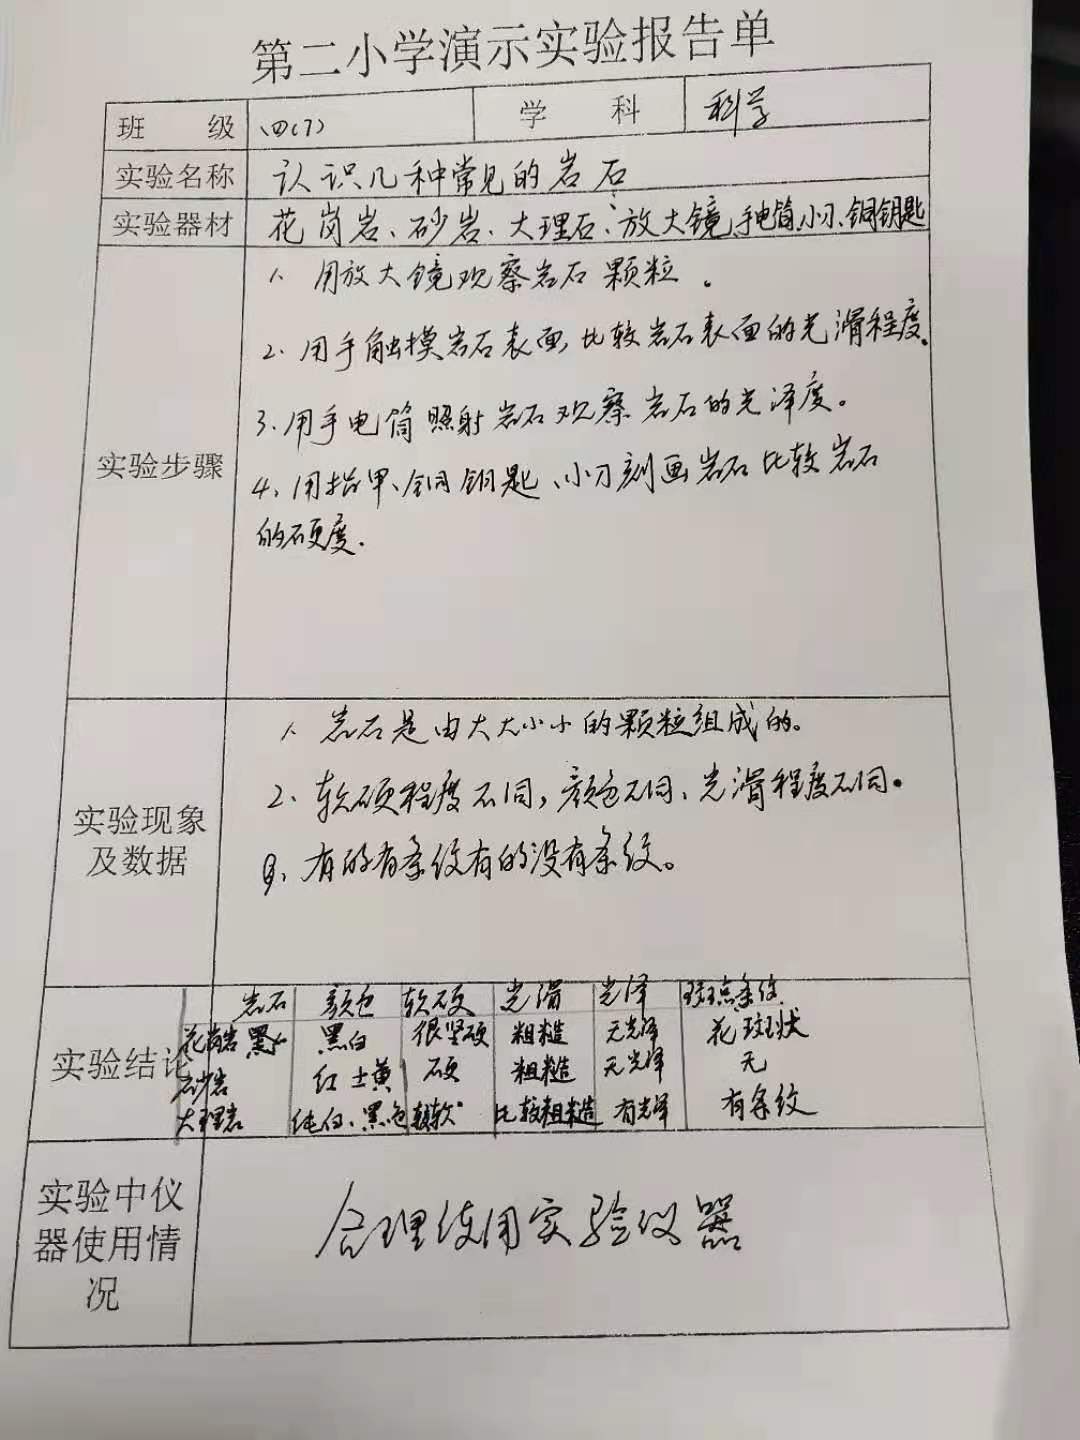 第二小学演示实验报告单
班 级 四(7) 学 科 科学
实验名称 认识几种常见的岩石
实验器材 花岗岩、砂岩、大理石:放大镜,手电筒,小刀、铜钥匙
实验步骤
1、用放大镜观察岩石颗粒。
2、用手触摸岩石表面,比较岩石表面的光滑程度。
3、用手电筒照射岩石观察岩石的光泽度。
4、用指甲、铜钥匙、小刀刻画岩石比较岩石
的硬度.
实验现象
及数据
1、岩石是由大大小小的颗粒组成的。
2、软硬程度不同,颜色不同、光滑程度不同。
3、有的有条纹有的没有条纹。
实验结论
岩石 颜色 软硬 光滑 光泽 斑点条纹
花岗岩 黑白 很坚硬 粗糙 无光泽 花斑状
砂岩 红土黄 硬 粗糙 无光泽 无
大理岩 纯白、黑色 较软 比较粗糙 有光泽 有条纹
实验中仪
器使用情
况
合理使用实验仪器